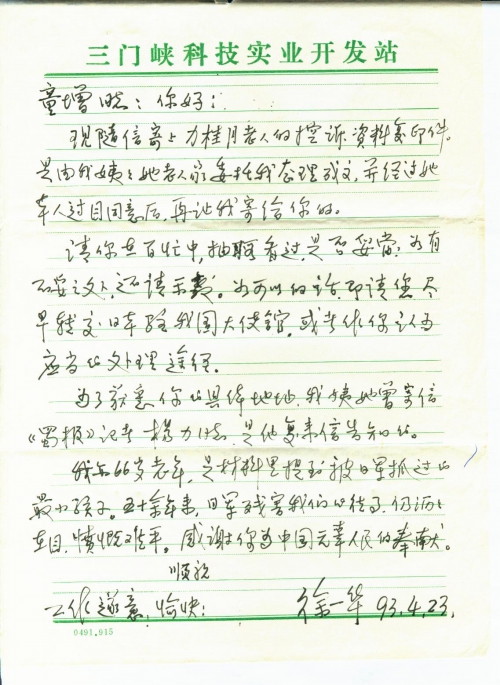 三门峡科技实业开发站
童增同志：你好！
现随信寄上万桂月老人的控诉资料复印件。
是由我姨她老人家委托我整理成文，并经过她
本人过目同意后，再让我寄给你的。
请你在百忙中，抽暇看过，是否妥当，如有
不妥之处，还请示裁。如可以的话，即请您尽
早转交日本驻我国大使馆，或者作你认为
应当的处理途径。
为了获悉你的具体地址，我姨她曾寄信
《蜀报》记者杨力同志，是他复来信告知的。
我如66岁老年，是材料里提到被日军抓过的
最小孩子。五十余年来，日军残害我们的往事，仍历历
在目，愤慨难平。感谢你为中国无辜人民的奉献。
顺祝
工作遂意，愉快！
徐一华 93.4.23.
0491.915